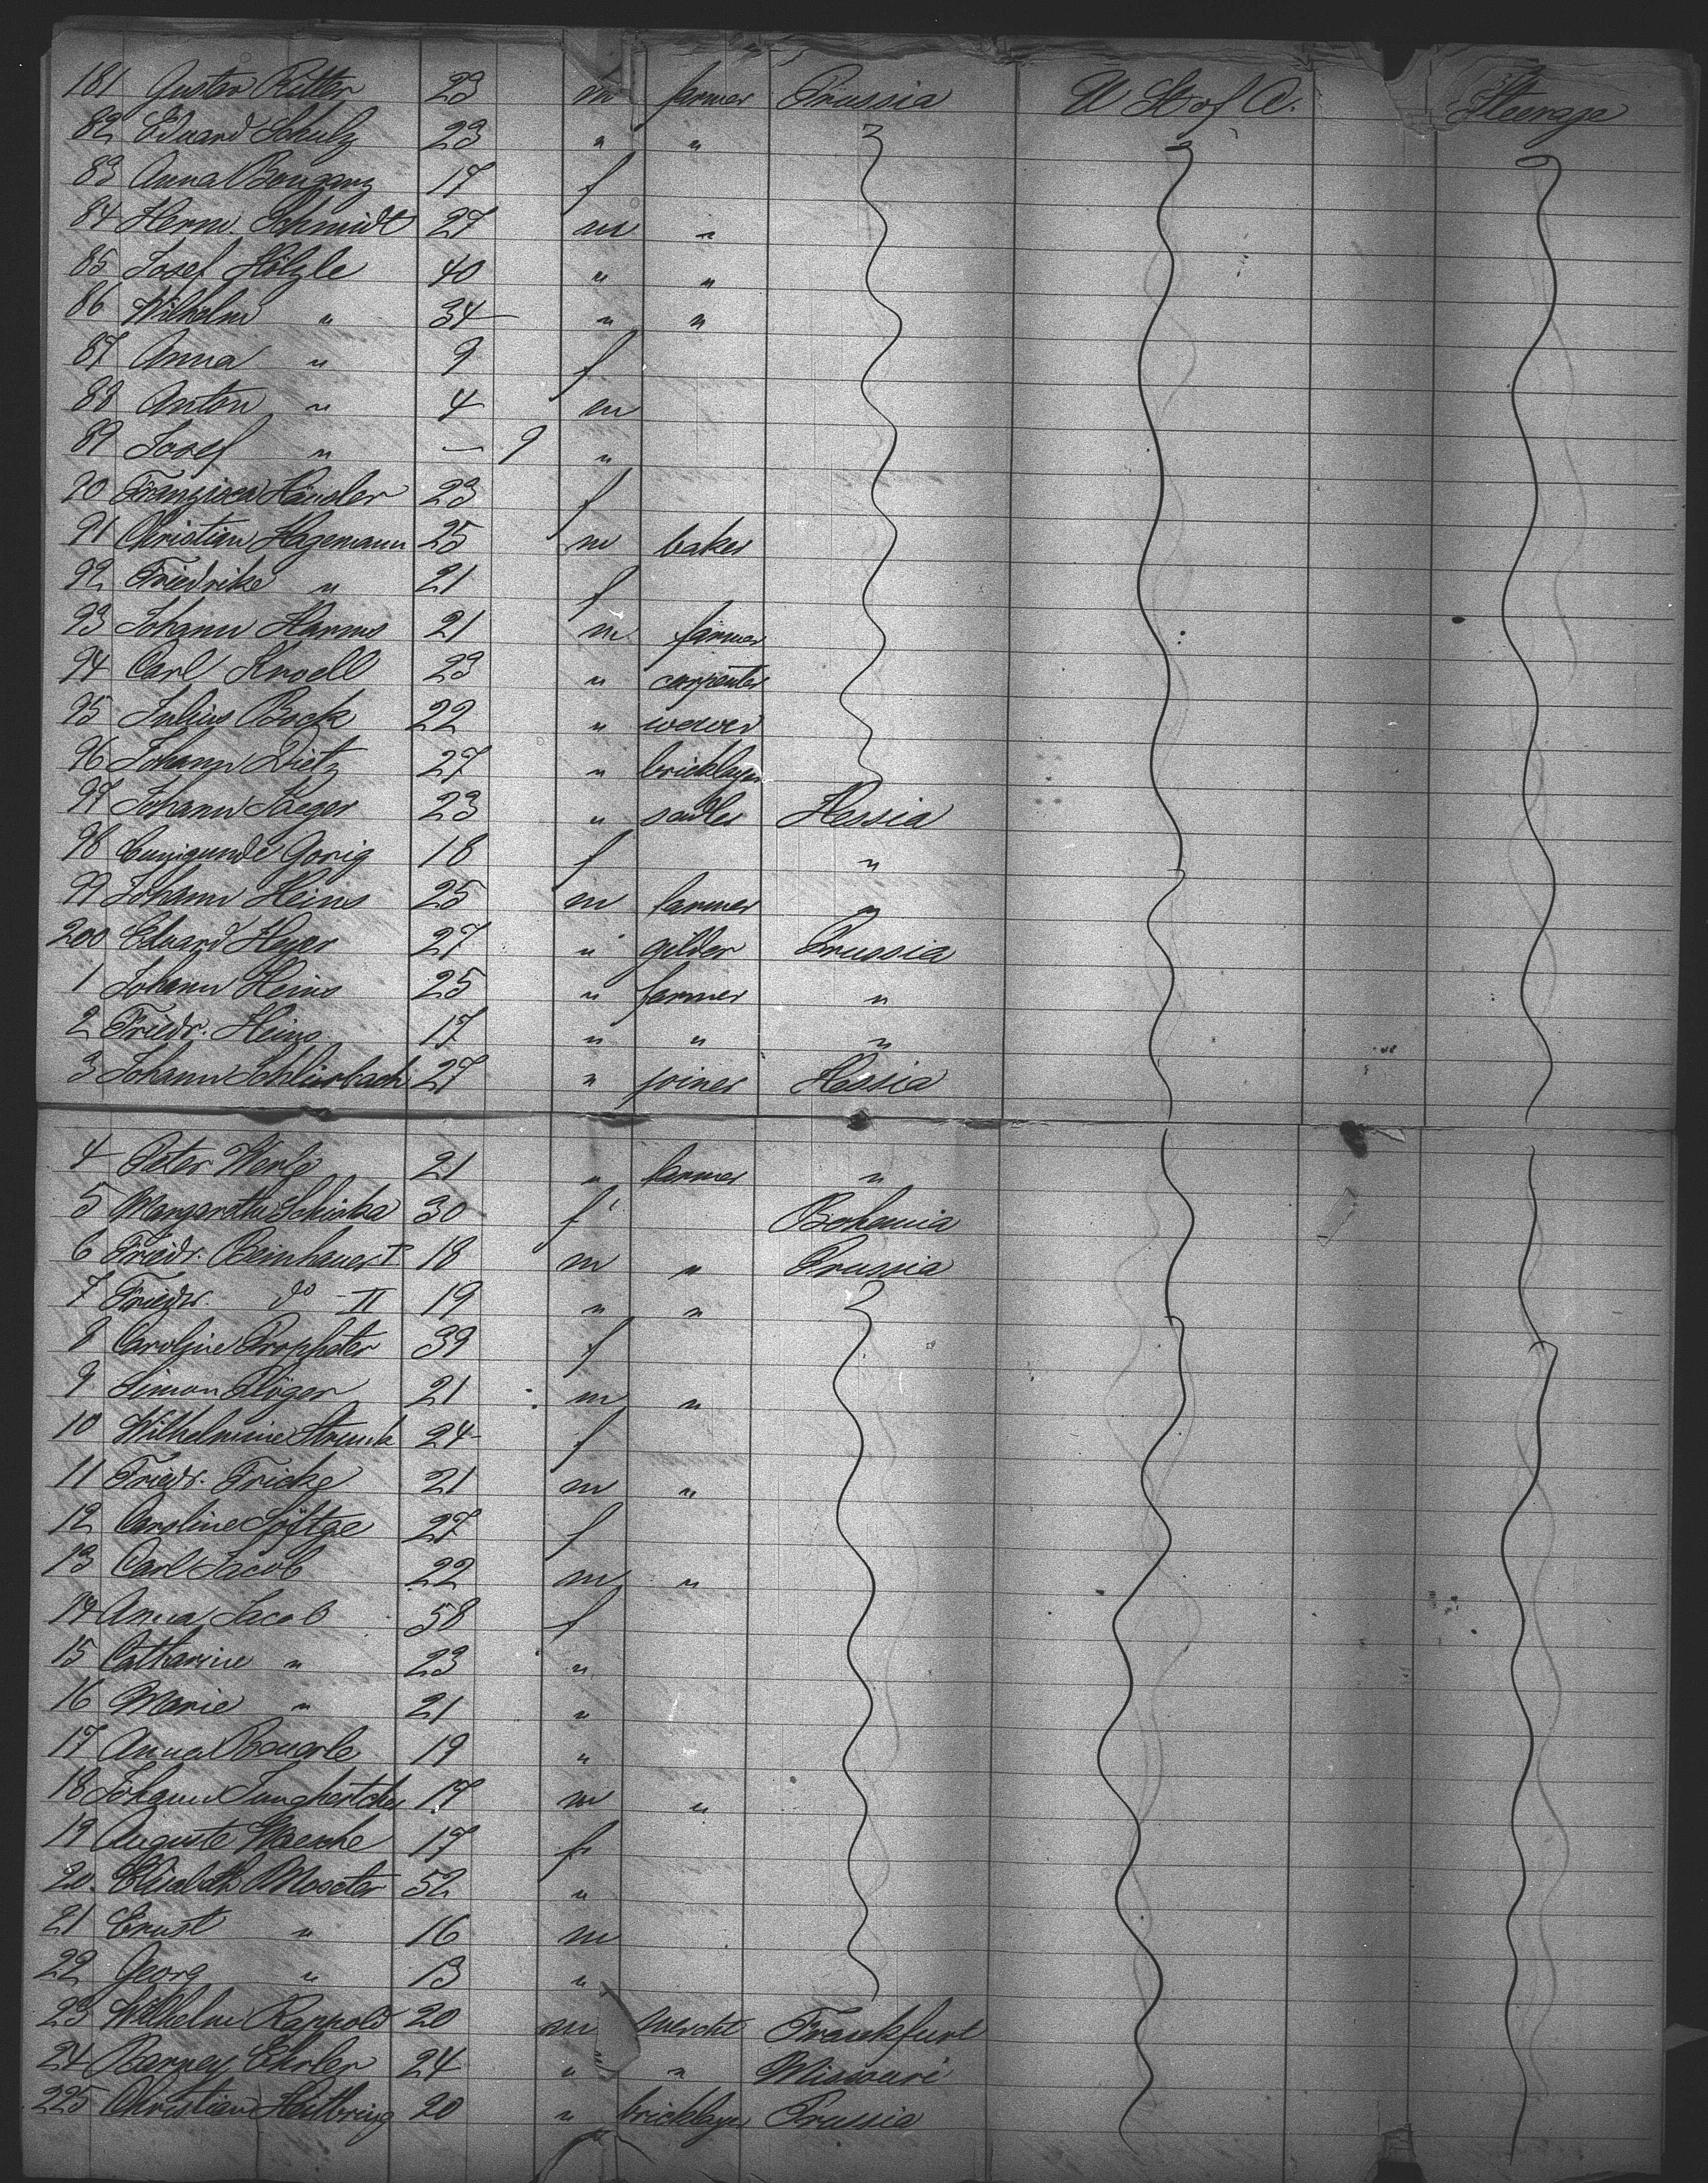 181 Gustav Ritter 23 m farmer Prussia U St of A. Steerage
82 Eduard Schulz 23 " "
83 Anna Bongarz 17 f
84 Herm. Schmidt 27 m "
85 Josef Hölzle 40 " "
86 Wilhelm " 34 " "
87 Anna " 9 f
88 Anton " 4 m
89 Josef " — 9 "
90 Franzisca Häusler 23 f
91 Christian Hagemann 25 m baker
92 Friedrike " 21 f
93 Johann Harms 21 m farmer
94 Carl Knoell 23 " carpenter
95 Julius Bock 22 " weaver
96 Johann Dietz 27 " bricklayer
97 Johann Jaeger 23 " sadler Hessia
98 Cunigunde Gorig 18 f "
99 Johann Heins 25 m farmer "
200 Eduard Heyer 27 " gilder Prussia
1 Johann Heins 25 " farmer "
2 Friedr. Heins 17 " " "
3 Johann Schlürbach 27 " joiner Hessia
4 Peter Werle 21 " farmer "
5 Margarethe 30 f Bohemia
6 Friedr. Beinhauer I 18 m " Prussia
7 Friedr. do II 19 " "
8 Caroline Prophater 39 f
9 Simon Plöger 21 m "
10 Wilhelmine Strunk 24 f
11 Friedr. Fricke 21 m "
12 Caroline 27 f
13 Carl Jacob 22 m "
14 Anna Jacob 58 f
15 Catharine " 23 "
16 Marie " 21 "
17 Anna Bouerle 19 "
18 Johann 17 m "
19 Auguste Waesche 17 f
20. Elisabeth Moseter 52 "
21 Ernst " 16 m
22 Georg " 13 "
23 Wilhelm Rappold 20 m mercht Frankfurt
24 Barney Ehrler 24 " " Missouri
225 Christian Heitbring 20 " bricklayer Prussia